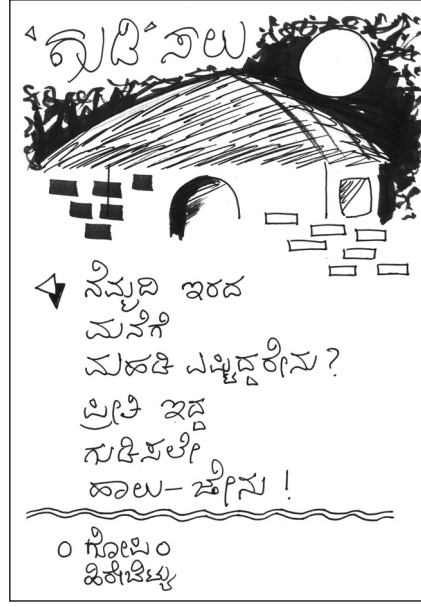 'ಗುಡಿ' ಸಲು
ನೆಮ್ಮದಿ ಇರದ
ಮನೆಗೆ
ಮಹಡಿ ಎಷ್ಟಿದ್ದರೇನು?
ಪ್ರೀತಿ ಇದ್ದ
ಗುಡಿಸಲೇ
ಹಾಲು-ಜೇನು!
೦ ಗೋಪಿಂ೦
ಹಿರೇಬೆಟ್ಟು